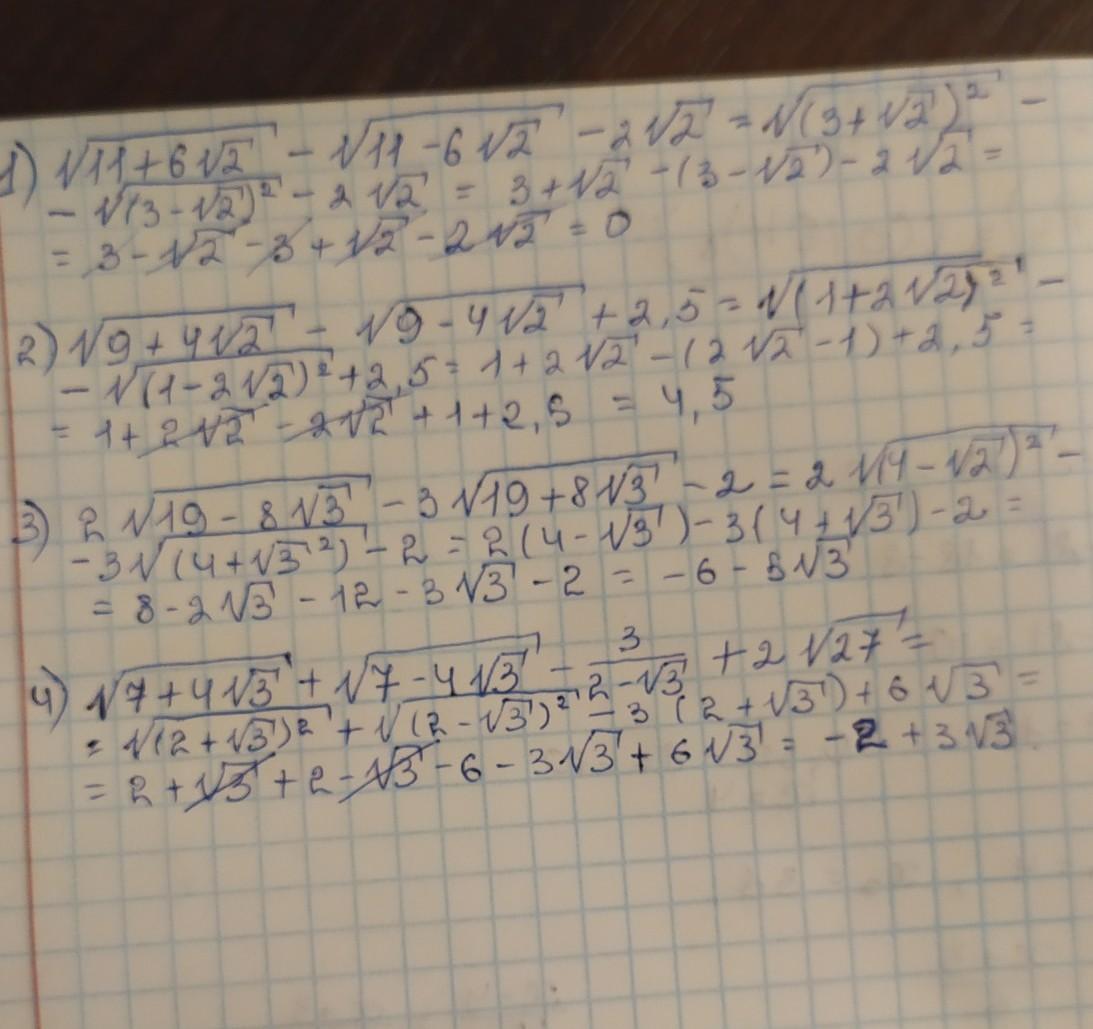 1) √(11+6√2) - √(11-6√2) - 2√2 = √((3+√2)²) -
- √((3-√2)²) - 2√2 = 3+√2 - (3-√2) - 2√2 =
= 3 - √2 - 3 + √2 - 2√2 = 0
2) √(9+4√2) - √(9-4√2) + 2,5 = √((1+2√2)²) -
- √((1-2√2)²) + 2,5 = 1+2√2 - (2√2-1) + 2,5 =
= 1+2√2 - 2√2 + 1 + 2,5 = 4,5
3) 2√(19-8√3) - 3√(19+8√3) - 2 = 2√((4-√2)²) -
- 3√((4+√3²)) - 2 = 2(4-√3) - 3(4+√3) - 2 =
= 8 - 2√3 - 12 - 3√3 - 2 = -6 - 5√3
4) √(7+4√3) + √(7-4√3) - 3/(2-√3) + 2√27 =
= √((2+√3)²) + √((2-√3)²) - 3(2+√3) + 6√3 =
= 2+√3 + 2-√3 - 6 - 3√3 + 6√3 = -2 + 3√3